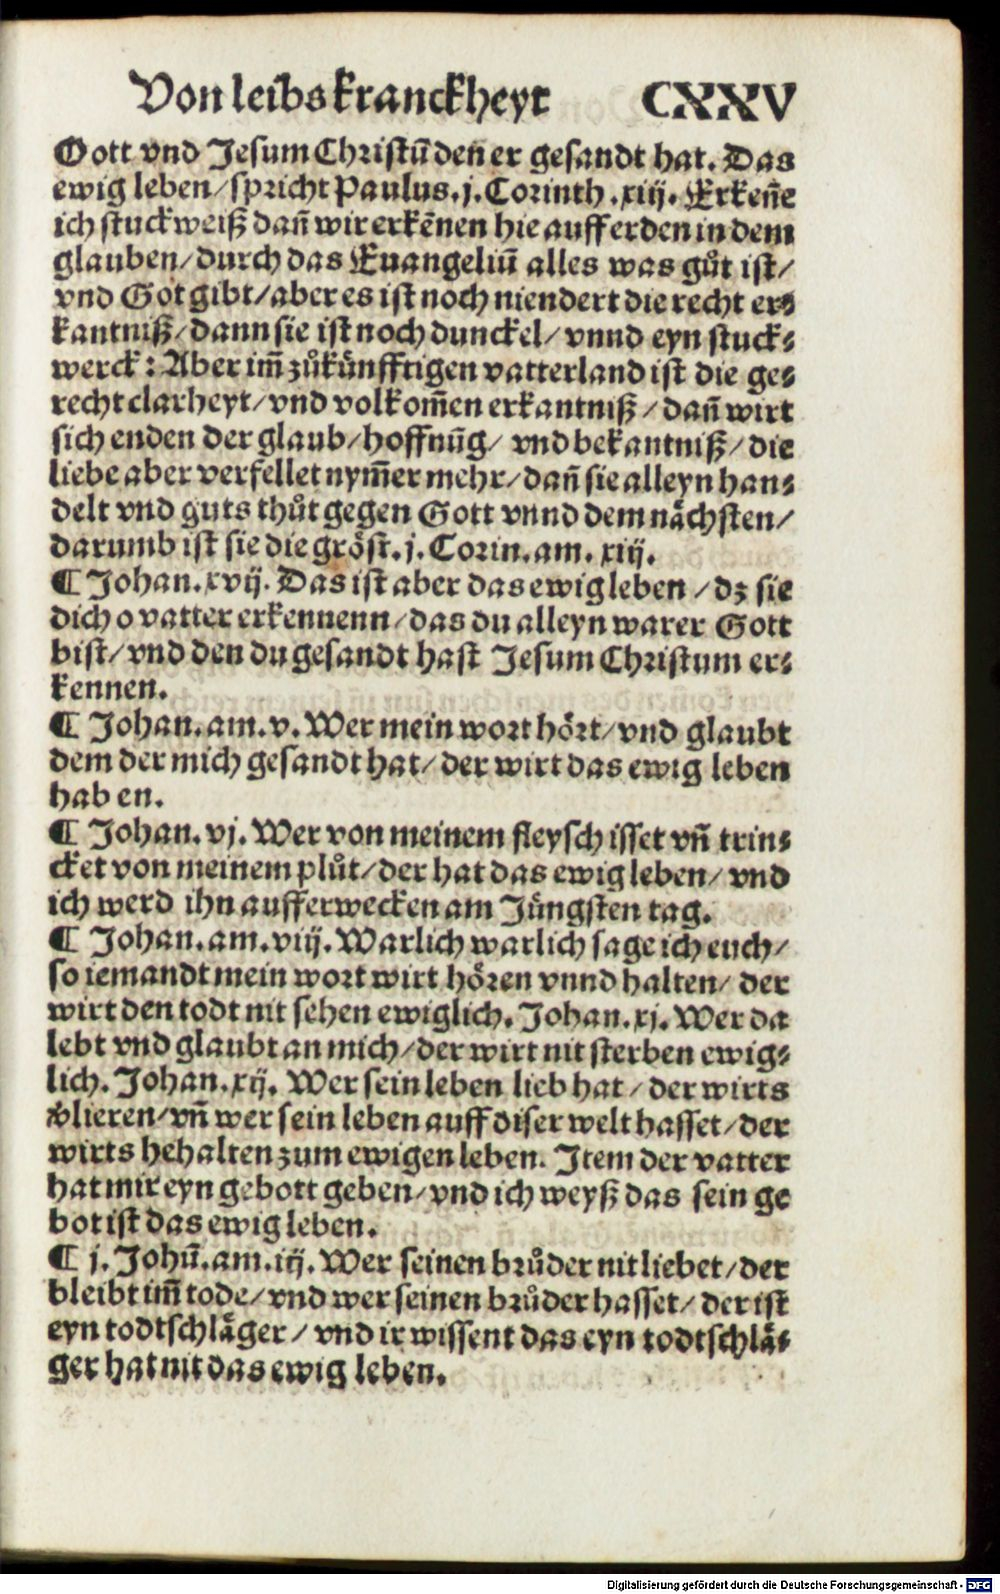 Von leibs kranckheyt CXXV
Gott vnd Jesum Christū den er gesandt hat. Das
ewig leben/spricht Paulus.j.Corinth.xiij. Erkeñe
ich stuckweiß dañ wir erkēnen hie auff erden in dem
glauben/durch das Euangeliū alles was gůt ist/
vnd Got gibt/aber es ist noch niendert die recht er⸗
kantniß/dann sie ist noch dunckel/ vnnd eyn stuck⸗
werck: Aber im̄ zůkünfftigen vatterland ist die ge⸗
recht clarheyt/vnd volkom̄en erkantniß/dañ wirt
sich enden der glaub/hoffnūg/ vnd bekantniß/die
liebe aber verfellet nym̄er mehr/dañ sie alleyn han⸗
delt vnd guts thůt gegen Gott vnnd dem nächsten/
darumb ist sie die gröst.j.Corin.am.xiij.
¶ Johan.xvij. Das ist aber das ewig leben/dz sie
dich o vatter erkennenn/das du alleyn warer Gott
bist/vnd den du gesandt hast Jesum Christum er⸗
kennen.
¶ Johan.am.v.Wer mein wort hört/vnd glaubt
dem der mich gesandt hat/der wirt das ewig leben
hab en.
¶ Johan.vj.Wer von meinem fleysch isset vñ trin⸗
cket von meinem plůt/der hat das ewig leben/vnd
ich werd ihn aufferwecken am Jüngsten tag.
¶ Johan.am.viij.Warlich warlich sage ich euch/
so iemandt mein wort wirt hören vnnd halten/ der
wirt den todt nit sehen ewiglich. Johan.xj.Wer da
lebt vnd glaubt an mich/der wirt nit sterben ewig⸗
lich. Johan.xij. Wer sein leben lieb hat/der wirts
v̄lieren/vñ wer sein leben auff diser welt hasset/der
wirts hehalten zum ewigen leben. Item der vatter
hat mir eyn gebott geben/vnd ich weyß das sein ge
bot ist das ewig leben.
¶ j.Johā.am.iij.Wer seinen brůder nit liebet/der
bleibt im̄ tode/vnd wer seinen brůder hasset/der ist
eyn todtschläger/vnd ir wissent das eyn todtschlä⸗
ger hat nit das ewig leben.
Digitalisierung gefördert durch die Deutsche Forschungsgemeinschaft - DFG